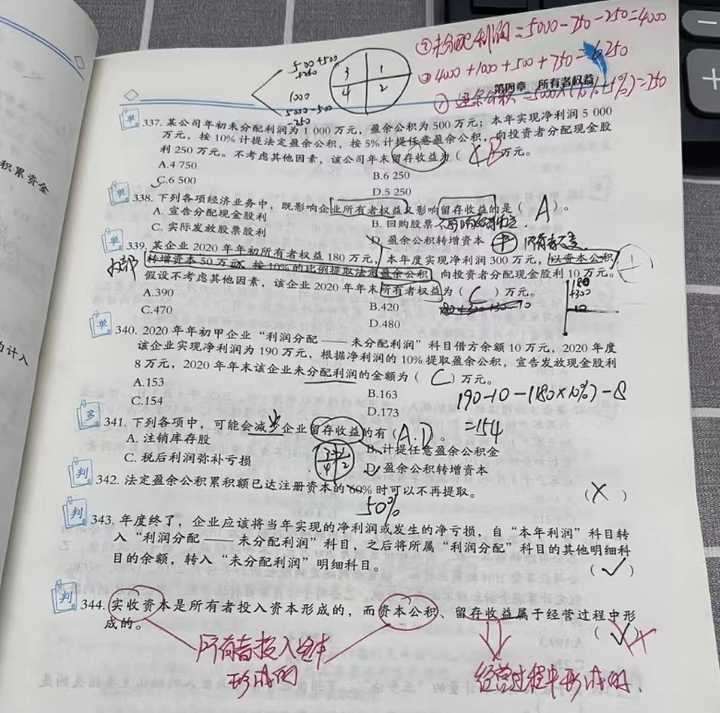 ③未分配利润=5000-750-250=4000
②4000+1000+500+750=6250
第四章 所有者权益
500+500
1000
-250
3 1
4 2
单
337. 某公司年初未分配利润为1 000万元，盈余公积为500万元；本年实现净利润5 000
万元，按10%计提法定盈余公积，按5%计提任意盈余公积，向投资者分配现金股
利250万元。不考虑其他因素，该公司年末留存收益为（ B ）万元。
A.4 750 B.6 250
C.6 500 D.5 250
单
338. 下列各项经济业务中，既影响企业所有者权益又影响留存收益的是（ A ）。
A. 宣告分配现金股利 B. 回购股票
C. 实际发放股票股利 D. 盈余公积转增资本
单
339. 某企业2020年年初所有者权益180万元，本年度实现净利润300万元，以资本公积
转增资本50万元，按10%的比例提取法定盈余公积，向投资者分配现金股利10万元。
内部
假设不考虑其他因素，该企业2020年年末所有者权益为（ C ）万元。
A.390 B.420
C.470 D.480
180
+300
-10
单
340. 2020年年初甲企业“利润分配——未分配利润”科目借方余额10万元，2020年度
该企业实现净利润为190万元，根据净利润的10%提取盈余公积，宣告发放现金股利
8万元，2020年年末该企业未分配利润的金额为（ C ）万元。
A.153 B.163
C.154 D.173
190-10-(180×10%)-8
=154
多
341. 下列各项中，可能会减少企业留存收益的有（A.D）。
A. 注销库存股 B. 计提任意盈余公积金
C. 税后利润弥补亏损 D. 盈余公积转增资本
3 1
4 2
判
342. 法定盈余公积累积额已达注册资本的60%时可以不再提取。 （ × ）
50%
判
343. 年度终了，企业应该将当年实现的净利润或发生的净亏损，自“本年利润”科目转
入“利润分配——未分配利润”科目，之后将所属“利润分配”科目的其他明细科
目的余额，转入“未分配利润”明细科目。 （ √ ）
判
344. 实收资本是所有者投入资本形成的，而资本公积、留存收益属于经营过程中形
成的。 （ √ ）
所有者投入资本
形成的
经营过程中形成的.
积累资金
计入